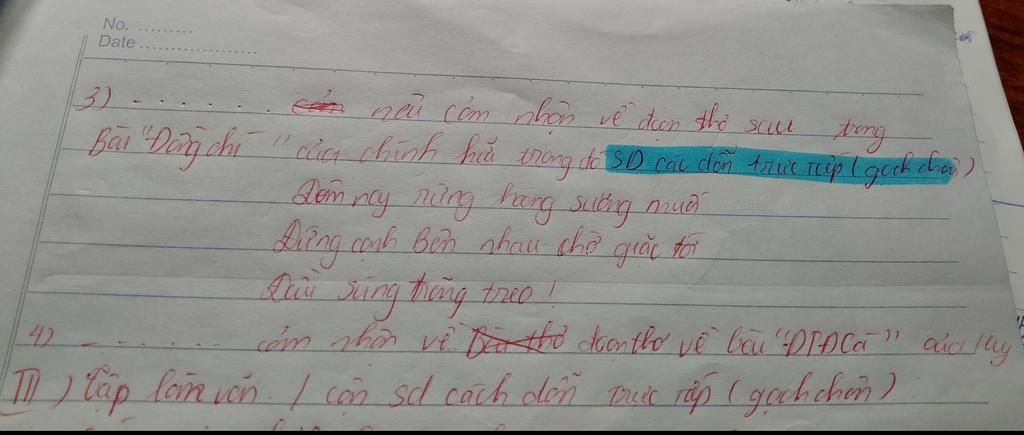 No. .........
Date ..................
3) - . . . . . . nêu cảm nhận về đoạn thơ sau trong
Bài "Đồng chí" của chính hữu trong đó SD các dẫn trực tiếp (gạch chân)
Đêm nay rừng hoang sương muối
Đứng cạnh Bên nhau chờ giặc tới
Đầu súng trăng treo!
4) - . . . . . . cảm nhận về đoạn thơ về bài "ĐTĐCá" của Huy
III) Tập làm văn. / cần sd cách dẫn trực tiếp (gạch chân)